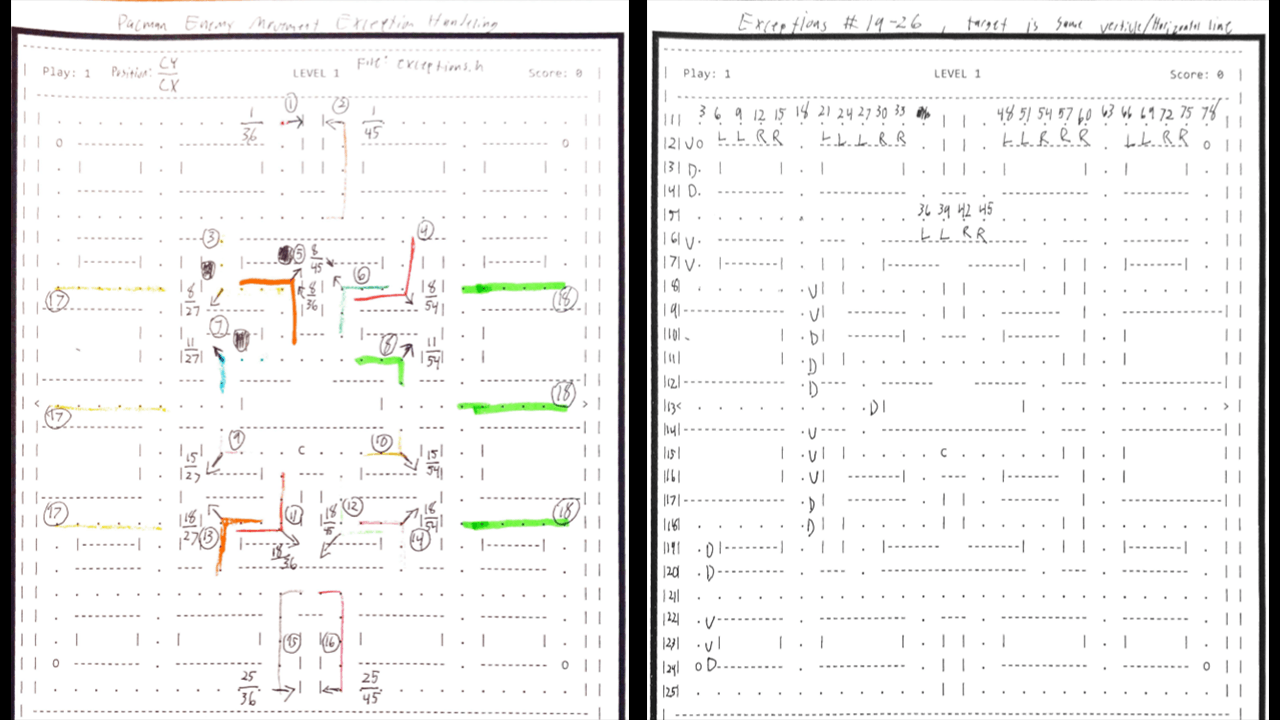 Pacman Enemy Movement Exception Handeling
Play: 1 Position: CY/CX LEVEL 1 File: exceptions.h Score: 0
1/36 1 2 1/45
3 4
5 8/45
6
17 8/27 8/36 8/54 18
7
11/27 8 11/54
17 18
9 C 10
15/27 15/54
17 11 12 18
18/27 13 18/54 14
18/36
15 16
25/36 25/45
Exceptions #19-26, target is same verticle/Horizontal line
Play: 1 LEVEL 1 Score: 0
3 6 9 12 15 18 21 24 27 30 33 48 51 54 57 60 63 66 69 72 75 78
1
2 U L L R R L L L R R L L R R R L L R R
3 D
4 D
5 36 39 42 45
6 U L L R R
7 U
8 U
9 U
10 D
11 D
12 D
13 < D >
14 U
15 U C
16 U
17 D
18 D
19 D
20 D
21
22 U
23 U
24 D
25